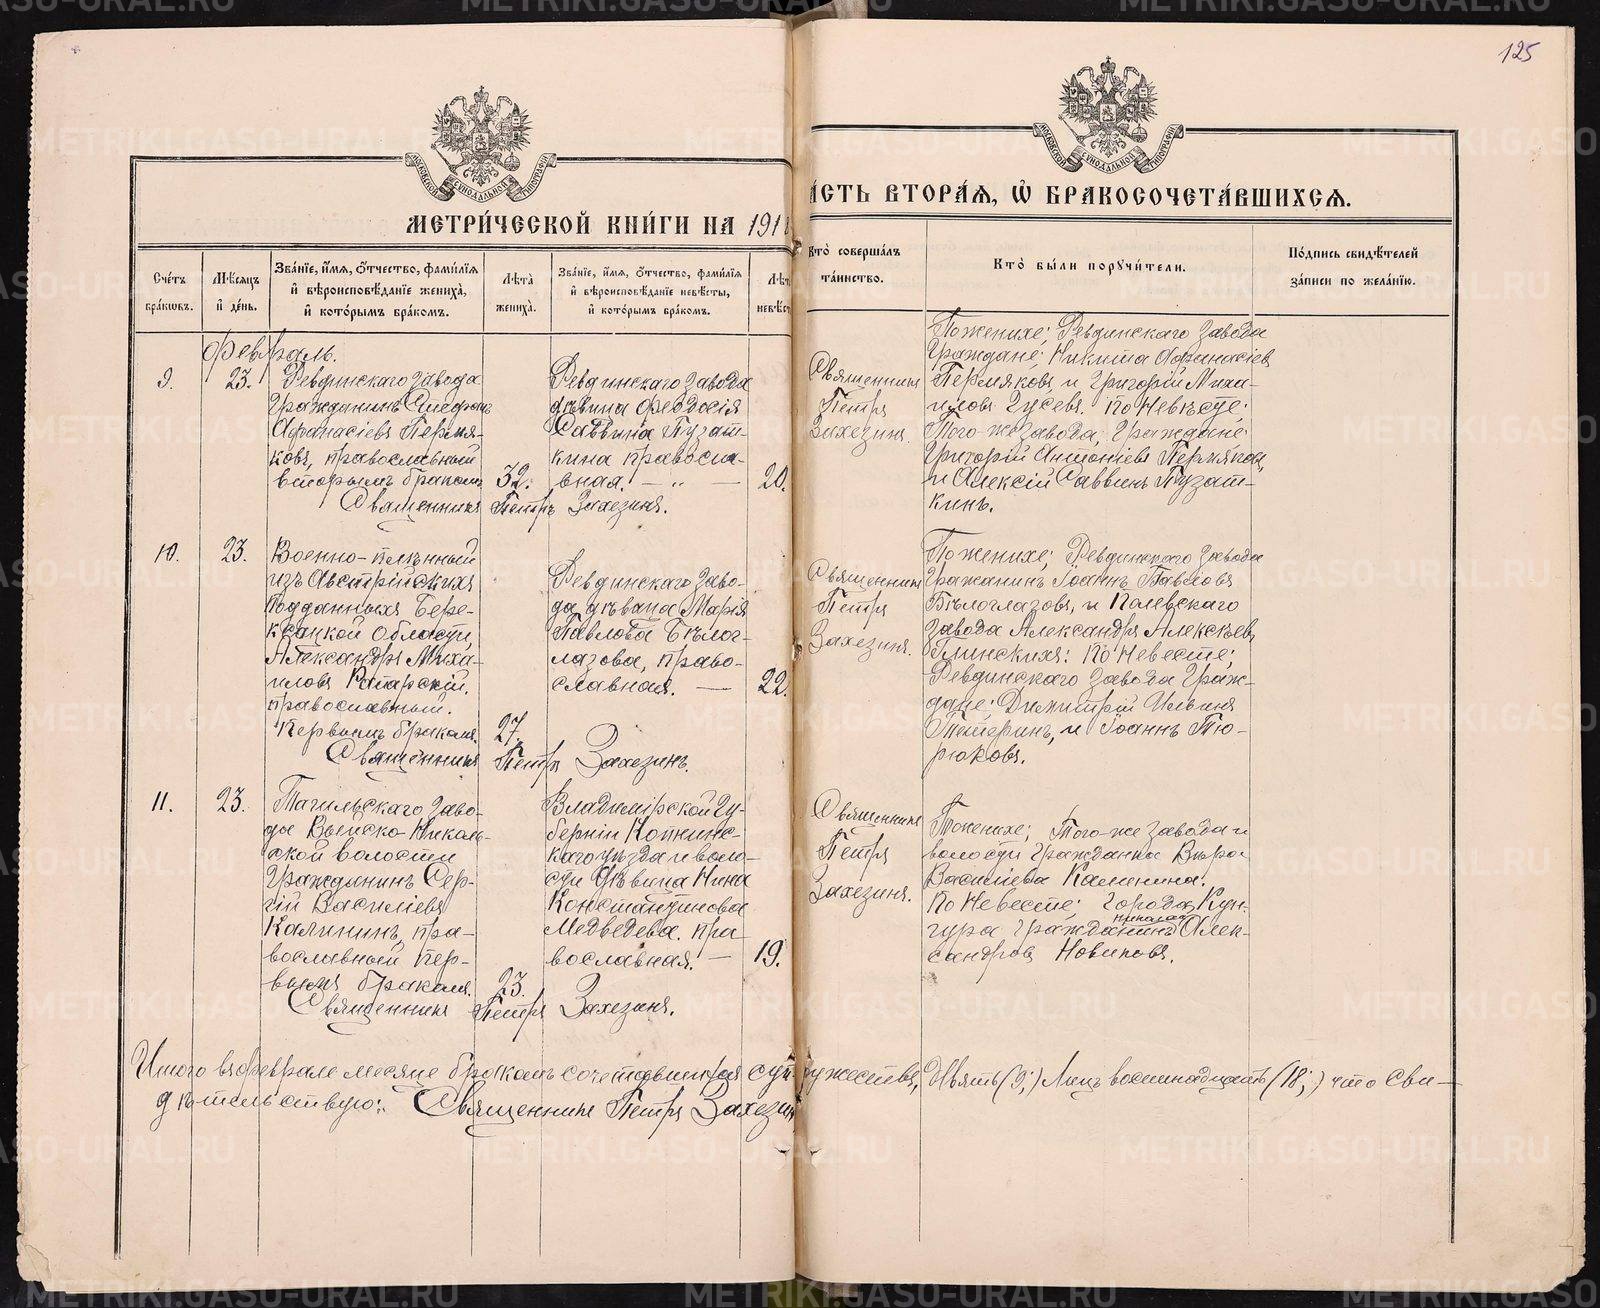 125
МОСКОВСКОЙ СѴНОДАЛЬНОЙ ТИПОГРАФІИ
МОСКОВСКОЙ СѴНОДАЛЬНОЙ ТИПОГРАФІИ
МЕТРИ́ЧЕСКОЙ КНИ́ГИ НА 1918
А́СТЬ ВТОРА́Ѧ, Ѡ҆ БРАКОСОЧЕТА́ВШИХСѦ.
Сче́тъ бра́ковъ.
Мѣ́сяцъ и҆ де́нь.
Зва́нїе, и҆́мѧ, ѻ҆́тчество, фами́лїѧ и҆ вѣроисповѣ́данїе жениха̀, и҆ кото́рымъ бра́комъ.
Лѣ́та жениха̀.
Зва́нїе, и҆́мѧ, ѻ҆́тчество, фами́лїѧ и҆ вѣроисповѣ́данїе невѣ́сты, и҆ кото́рымъ бра́комъ.
Лѣ́т невѣ́с
Кто̀ соверша́лъ та́инство.
Кто̀ бы́ли порꙋчи́тели.
По́дпись свидѣ́телей за́писи по жела́нїю.
Февраль.
9.
23.
Ревдинскаго завода
Гражданинъ Стефанъ
Афанасіевъ Пермя-
ковъ, православный
вторымъ бракомъ
32.
Ревдинскаго завода
дѣвица Феодосія
Саввина Пузат-
кина правосла-
вная. — „ —
20.
Священникъ Петръ Захезинъ.
Священникъ
Петръ
Захезинъ.
По женихе; Ревдинскаго завода
Граждане; Никита Афанасіевъ
Пермяковъ и Григорій Миха-
иловъ Гусевъ. По Невѣсте;
Того же завода; Граждане
Григорій Антоніевъ Пермяковъ,
и Алексій Саввинъ Пузат-
кинъ.
10.
23.
Военно-плѣнный
изъ Австрійскихъ
Подданныхъ Бере-
ксацкой области,
Александръ Миха-
иловъ
православный.
Первымъ бракомъ.
27.
Ревдинскаго заво-
да дѣвица Марія
Павлова Бѣлог-
лазова, право-
славная. —
22.
Священникъ Петръ Захезинъ.
Священникъ
Петръ
Захезинъ.
По женихе; Ревдинскаго завода
Гражанинъ Іоаннъ Павловъ
Бѣлоглазовъ, и Полевскаго
завода Александръ Алексѣевъ
Глинскихъ: По Невесте;
Ревдинскаго завода Граж-
дане; Димитрій Ильинъ
Тетеринъ, и Іоаннъ Тю-
рюковъ.
11.
23.
Тагильскаго заво-
да Выйско-Николь-
ской волости
Гражданинъ Сер-
гій Василіевъ
Калининъ, пра-
вославный пер-
вымъ бракомъ.
23.
Владимірской Гу-
берніи
каго уѣзда и воло-
сти дѣвица Нина
Константинова
Медведева. пра
вославная. —
19.
Священникъ Петръ Захезинъ.
Священникъ
Петръ
Захезинъ.
По женихе; Того-же завода и
волости Гражданка Вѣра
Василіева Калинина.
По Невесте; города Кун-
гура Гражданинъ Николай Алек-
сандровъ Новиковъ.
Итого въ феврале месяце бракомъ сочетавшихся супружествъ, Девять (9;) Лицъ восемнадцать (18;) что сви-
дѣтельствую: Священникъ Петръ Захезинъ
METRIKI.GASO-URAL.RU